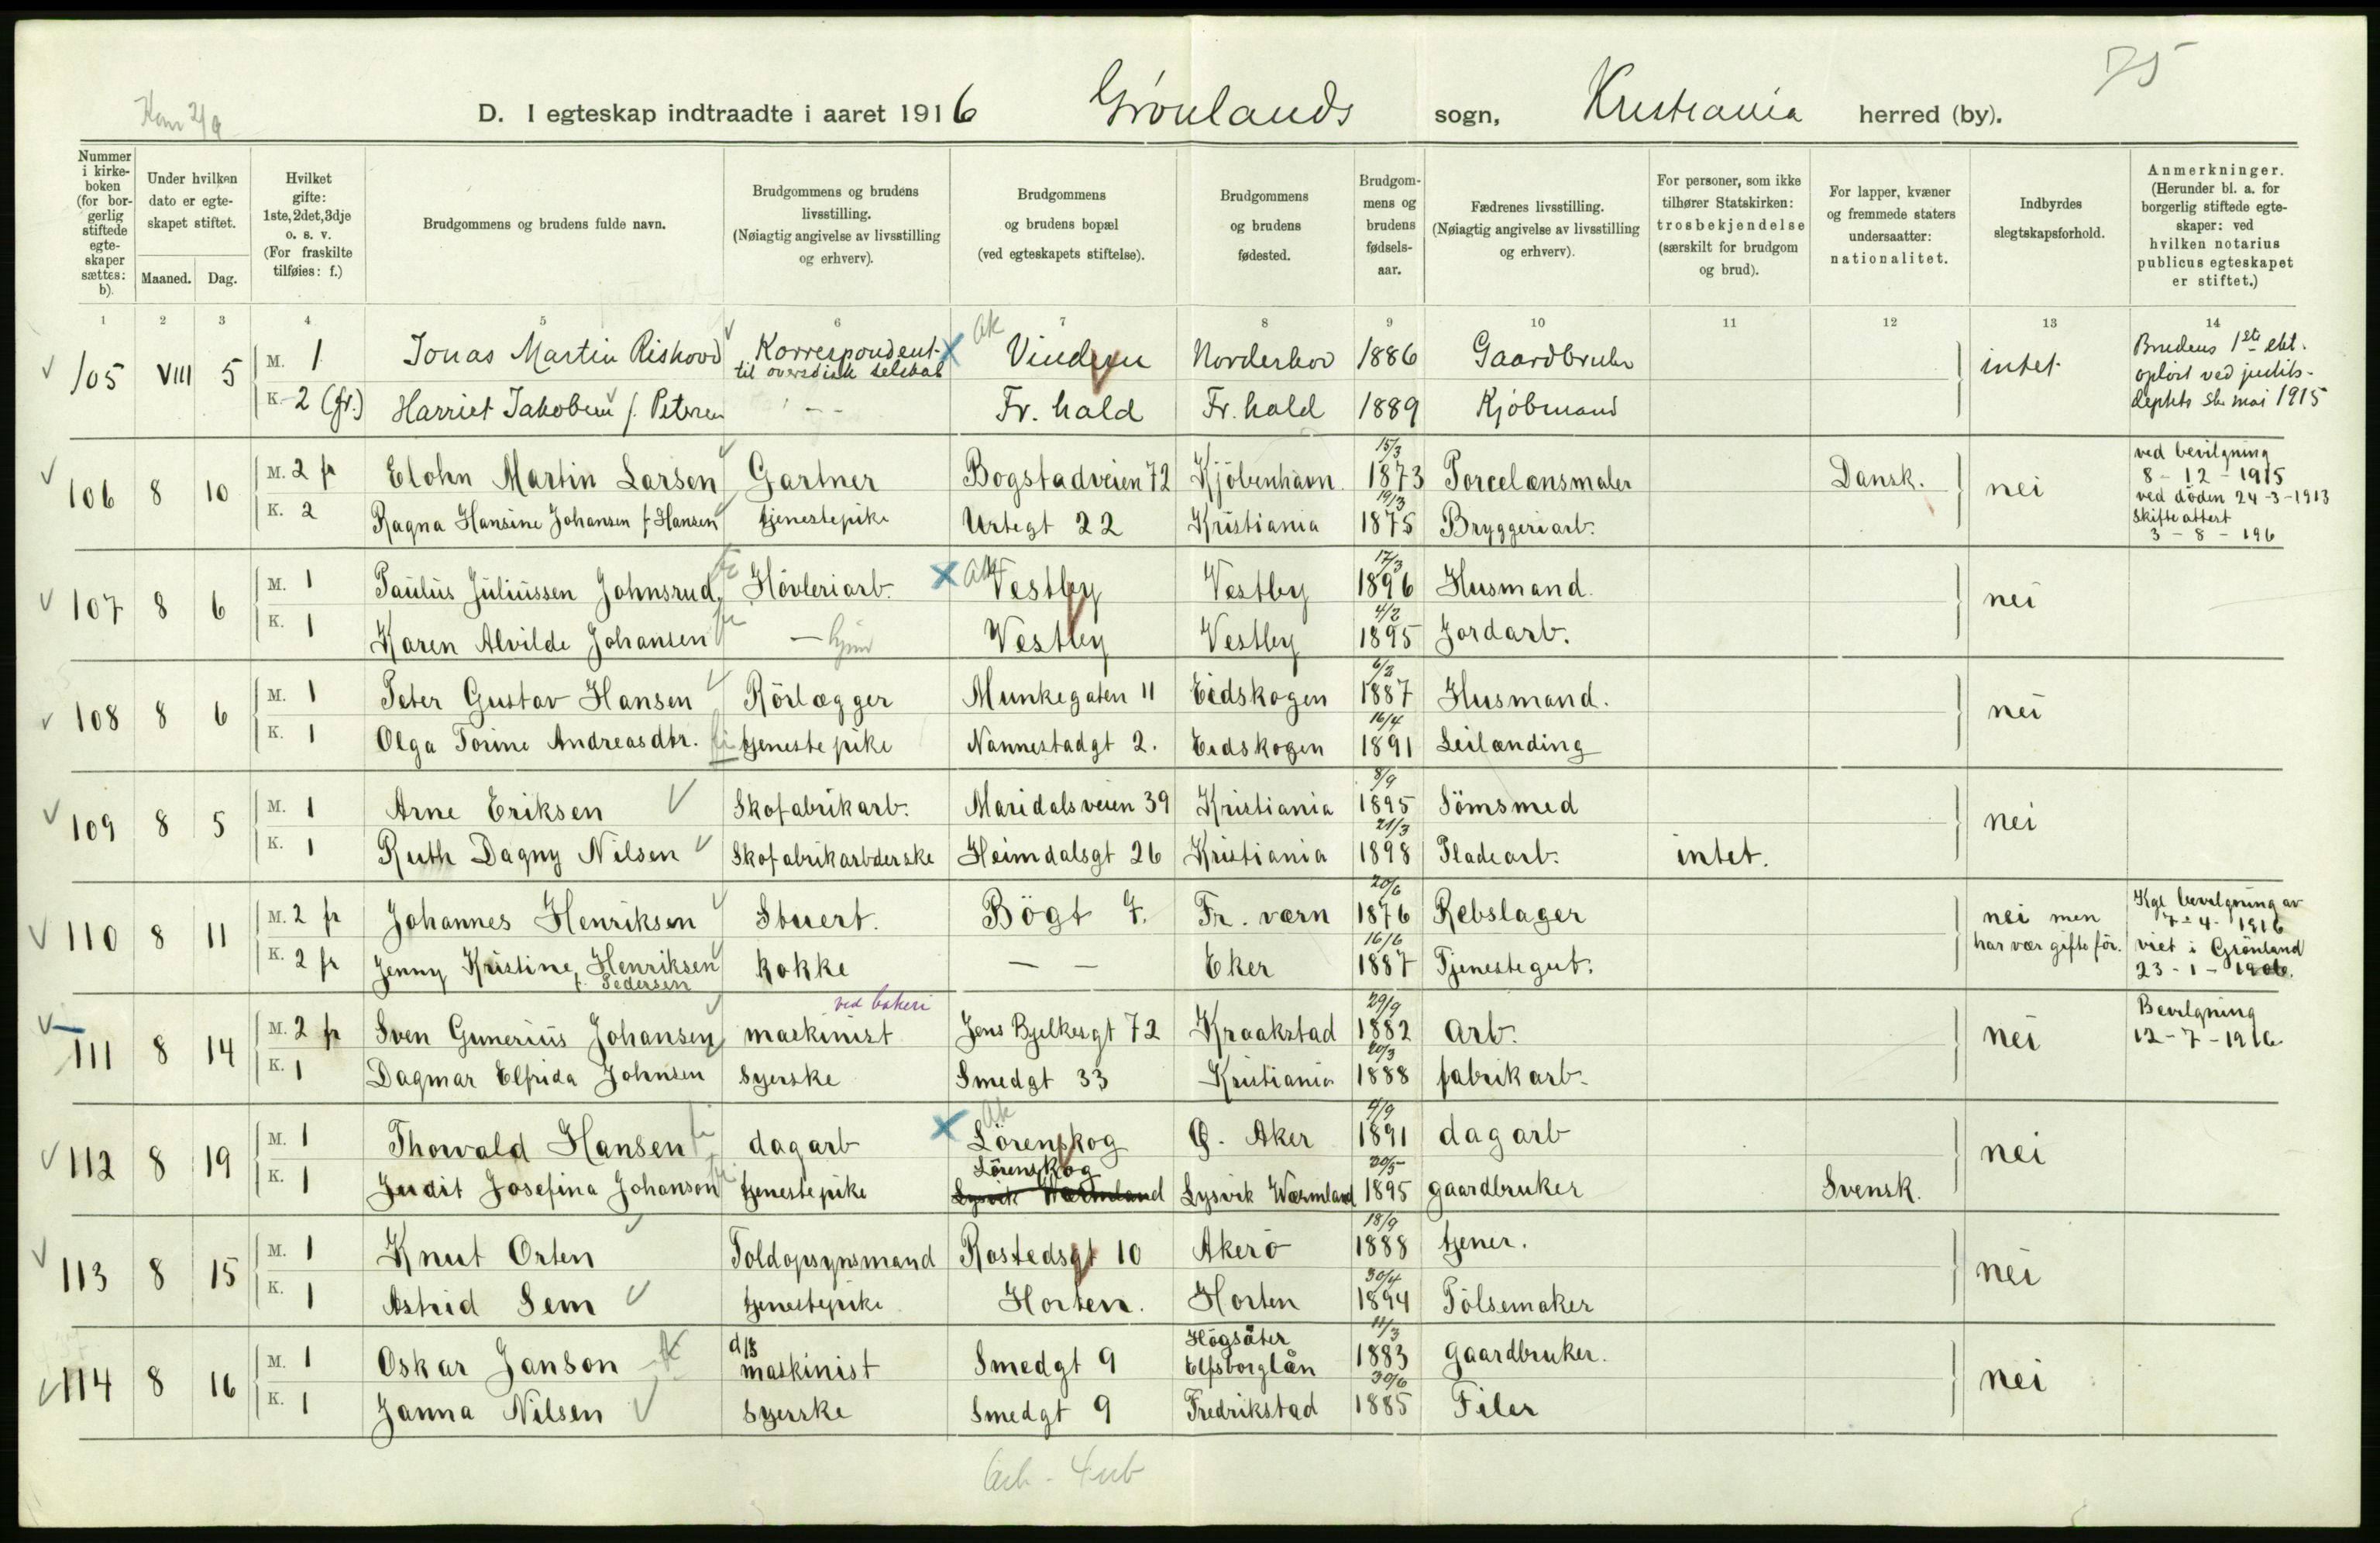 75
D. I egteskap indtraadte i aaret 1916 Grønlands sogn, Kristiania herred (by).
Nummer i kirkeboken (for borgerlig stiftede egteskaper sættes: b).
Under hvilken dato er egteskapet stiftet.
Maaned. Dag.
Hvilket gifte: 1ste, 2det, 3dje o. s. v. (For fraskilte tilføies: f.)
Brudgommens og brudens fulde navn.
Brudgommens og brudens livsstilling. (Nøiagtig angivelse av livsstilling og erhverv).
Brudgommens og brudens bopæl (ved egteskapets stiftelse).
Brudgommens og brudens fødested.
Brudgommens og brudens fødselsaar.
Fædrenes livsstilling. (Nøiagtig angivelse av livsstilling og erhverv).
For personer, som ikke tilhører Statskirken: trosbekjendelse (særskilt for brudgom og brud).
For lapper, kvæner og fremmede staters undersaatter: nationalitet.
Indbyrdes slegtskapsforhold.
Anmerkninger. (Herunder bl. a. for borgerlig stiftede egteskaper: ved hvilken notarius publicus egteskapet er stiftet.)
1 2 3 4 5 6 7 8 9 10 11 12 13 14
105 VIII 5 M. 1 Jonas Martin Rishovd Korrespondent til oversøisk selskab Ak Vinderen Norderhov 1886 Gaardbruker intet Brudens 1ste ekt. opløst ved justits-
K. 2 (fr.) Harriet Jakobsen f. Petersen - - Fr. hald Fr. hald 1889 Kjøbmand mai 1915
106 8 10 M. 2 fr Elohn Martin Larsen Gartner Bogstadveien 72 Kjöbenhavn 15/3 1873 Porcelænsmaler Dansk. nei ved bevilgning 8-12-1915
K. 2 Ragna Hansine Johansen f. Hansen tjenestepike Urtegt 22 Kristiania 19/3 1875 Bryggeriarb. ved döden 24-3-1913 Skifteattest 3-8-196
107 8 6 M. 1 Paulus Juliussen Johnsrud Hövleriarb. Ak Vestby Vestby 17/3 1896 Husmand. nei
K. 1 Karen Alvilde Johansen - hjem Vestby Vestby 4/2 1895 Jordarb.
108 8 6 M. 1 Peter Gustav Hansen Rörlægger Munkegaten 11 Eidskogen 6/2 1887 Husmand. nei
K. 1 Olga Torine Andreasdtr. tjenestepike Nannestadgt 2. Eidskogen 16/4 1891 Leilænding
109 8 5 M. 1 Arne Eriksen Skofabrikarb. Maridalsveien 39 Kristiania 8/9 1895 Sömsmed nei
K. 1 Ruth Dagny Nilsen Skofabrikarbderske Heimdalsgt 26 Kristiania 21/3 1898 Pladearb. intet.
110 8 11 M. 2 fr Johannes Henriksen Stuert. Bögt 7. Fr. værn 20/6 1876 Rebslager nei men har vær gifte för. Kgl bevilgning av 7-4-1916
K. 2 fr Jenny Kristine Henriksen f. Pedersen kokke - - Eker 16/6 1887 Tjenestegut. viet i Grönland 23-1-1906.
111 8 14 M. 2 fr Sven Gunerius Johansen maskinist ved bakeri Jens Bjelkesgt 72 Kraakstad 29/9 1882 arb. nei Bevilgning 12-7-1916
K. 1 Dagmar Elfrida Johnsen syerske Smedgt 33 Kristiania 20/3 1888 fabrikarb.
112 8 19 M. 1 Thorvald Hansen dagarb Ak Lörenskog Ö. Aker 9/9 1891 dagarb nei
K. 1 Judit Josefina Johanson tjenestepike Lörenskog Lysvik Wærmland Lysvik Wærmland 30/5 1895 gaardbruker Svensk.
113 8 15 M. 1 Knut Orten Toldopsynsmand Rostedsgt 10 Akerö 18/9 1888 tjener. nei
K. 1 Astrid Sem tjenestepike Horten. Horten 30/4 1894 Pölsemaker
114 8 16 M. 1 Oskar Janson d/s maskinist Smedgt 9 Högsäter Elfsborglän 11/3 1883 gaardbruker. nei
K. 1 Janna Nilsen syerske Smedgt 9 Fredrikstad 30/6 1885 Filer